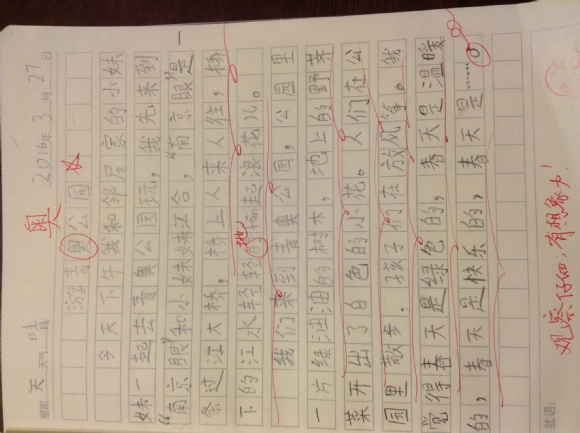 星期 天 天气 晴 2016年3月27日
奥
游青奥公园
今天下午我和邻居家的小妹
妹一起去青奥公园玩，我先来到
“南京眼”和小妹妹汇合，“南京眼”是一
条过江大桥，桥上人来人往，桥
地
下的江水轻轻的荡起浪花儿。
我们来到青奥公园，公园里
一片绿油油的树木，地上的野菜
菜开出了白色的小花。人们在公
园里散步，孩子们在放风筝。我
觉得春天是绿色的，春天是温暖
的，春天是快乐的，春天是……。
批语：
观察仔细，有想象力！